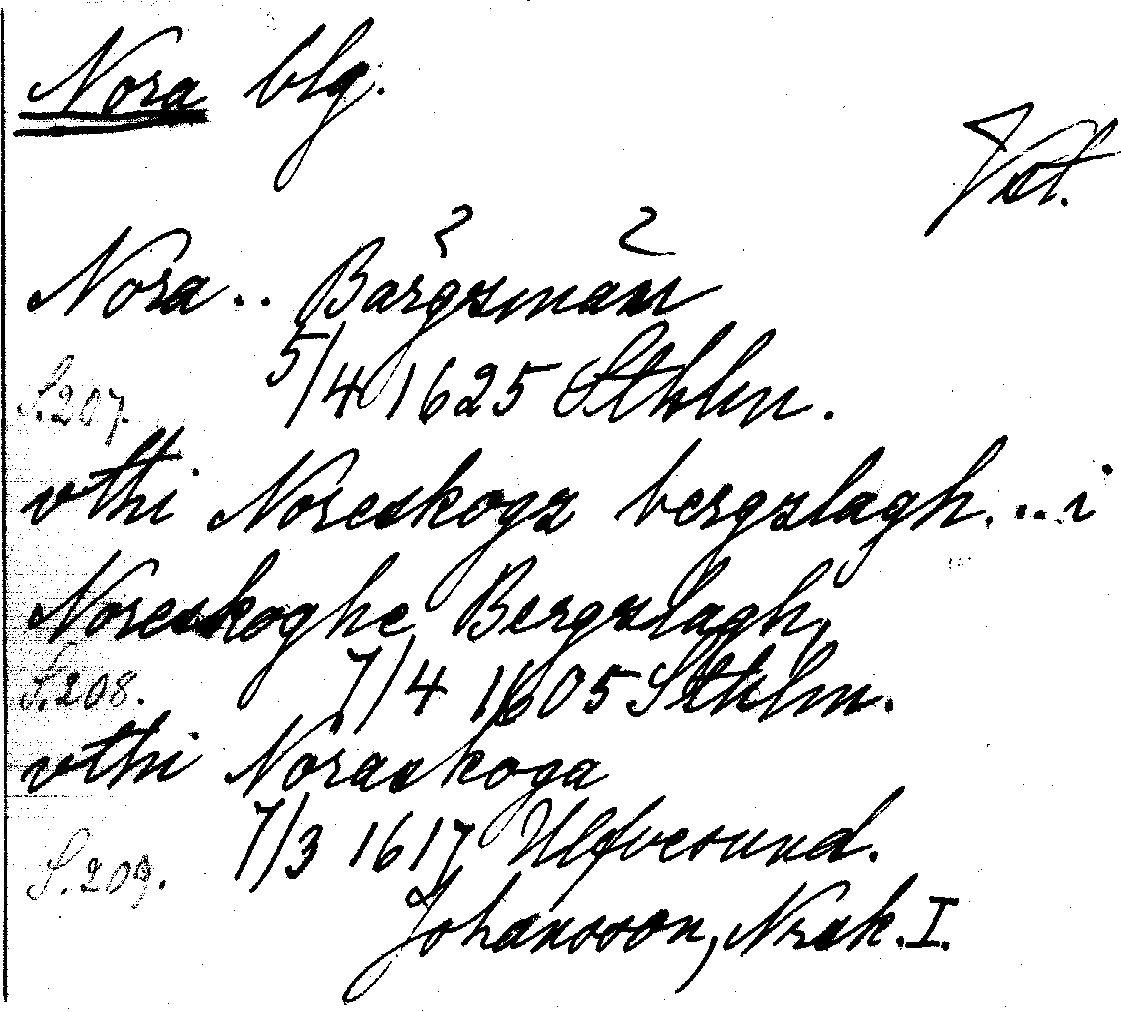 Nora blg.
Vstm.
Nora.. Bärgzmän
5/4 1625 Sthlm.
S.207.
vthi Noreskogz bergzlagh...i
Noreskoghe Bergzlagh,
S.208. 7/4 1605 Sthlm.
vthi Noraskoga
7/3 1617 Ulfvesund.
S.209.
Johansson, Nrsk.I.